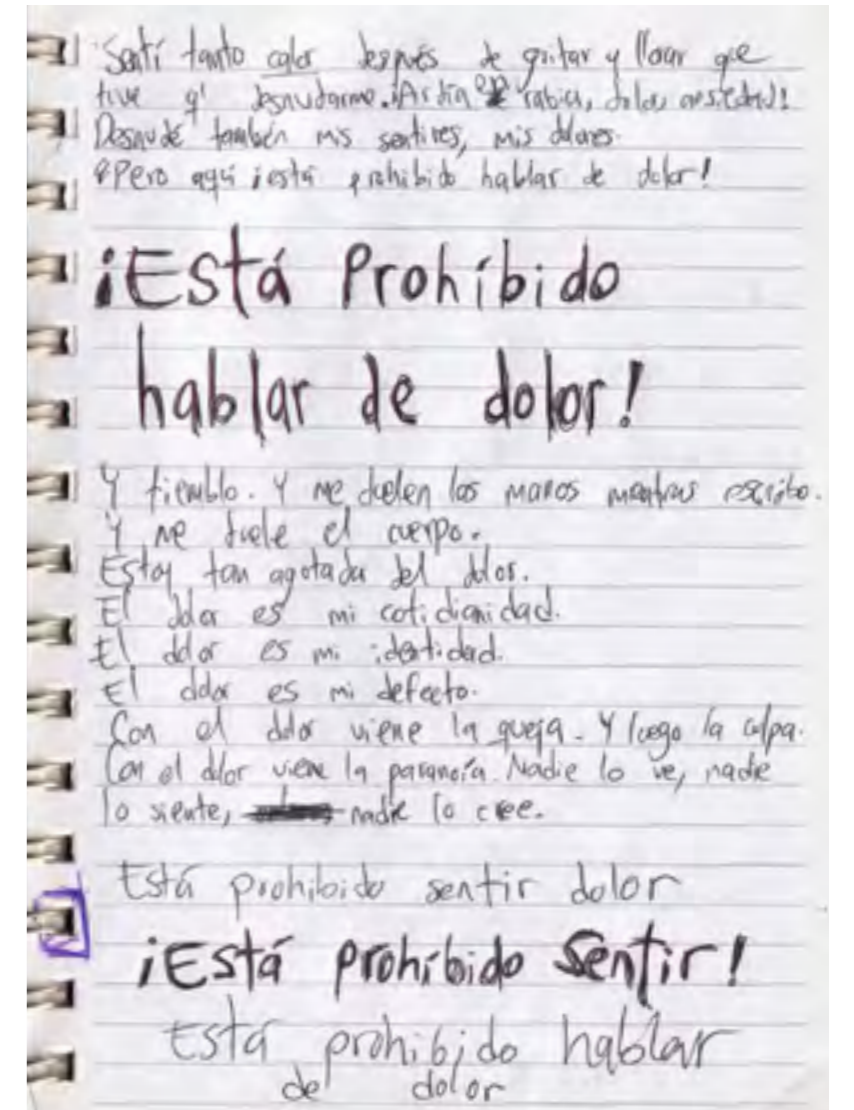 Sentí tanto calor después de gritar y llorar que
tuve q' desnudarme. ¡Ardía en rabia, dolor, ansiedad!
Desnudé también mis sentires, mis dolores.
Pero aquí ¡está prohibido hablar de dolor!
¡Está Prohibido
hablar de dolor!
Y tiemblo. Y me duelen las manos mientras escribo.
Y me duele el cuerpo.
Estoy tan agotada del dolor.
El dolor es mi cotidianidad.
El dolor es mi identidad.
El dolor es mi defecto.
Con el dolor viene la queja. Y luego la culpa.
Con el dolor viene la paranoia. Nadie lo ve, nadie
lo siente, nadie lo cree.
Está prohibido sentir dolor
¡Está prohibido sentir!
Está prohibido hablar
de dolor